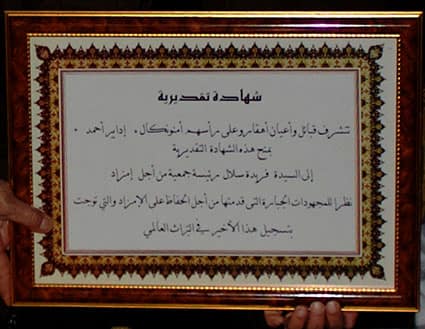 شهادة تقديرية
تتشرف قبائل وأعيان أهقار وعلى رأسهم أمنوكال . إدابير أحمد .
بمنح هذه الشهادة التقديرية
إلى السيدة فريدة سلال رئيسة جمعية من أجل إمزاد
نظرا للمجهودات الجبارة التى قدمتها من أجل الحفاظ على الامزاد والتي توجت
بتسجيل هذا الأخير في التراث العالمي